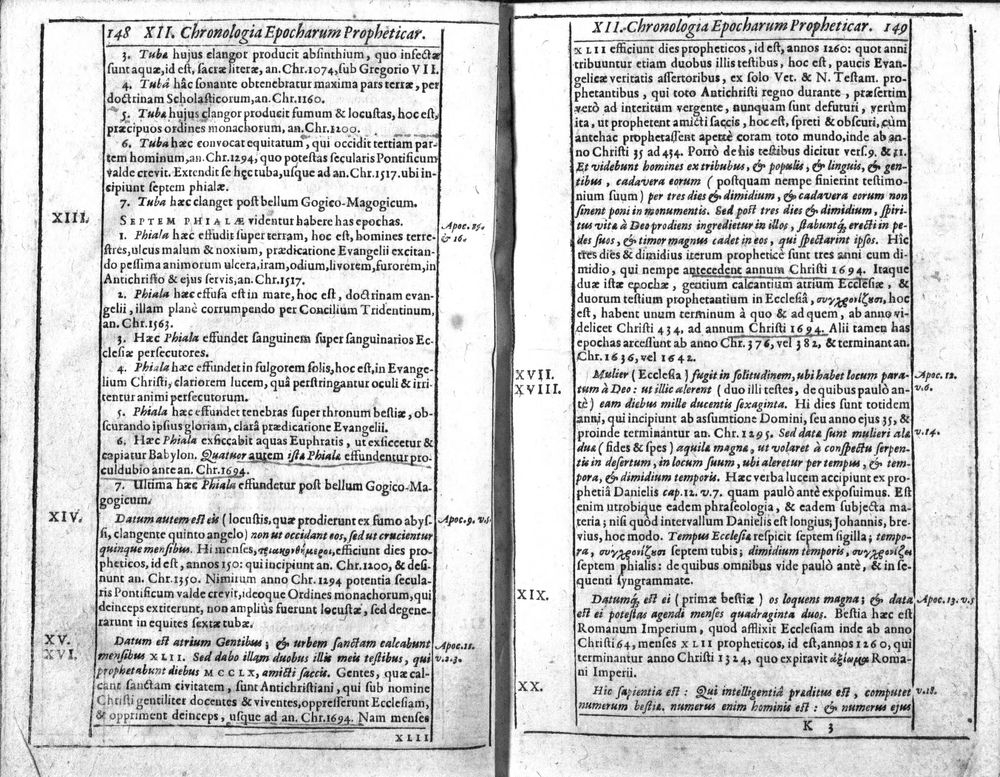 148 XII. Chronologia Epocharum Propheticar.
3. Tuba hujus clangor producit absinthium, quo infectæ
sunt aquæ, id est, sacræ literæ, an. Chr. 1074, sub Gregorio VII.
4. Tubâ hâc sonante obtenebratur maxima pars terræ, per
doctrinam Scholasticorum, an. Chr. 1160.
5. Tuba hujus clangor producit fumum & locustas, hoc est,
præcipuos ordines monachorum, an. Chr. 1200.
6. Tuba hæc convocat equitatum, qui occidit tertiam par-
tem hominum, an. Chr. 1294, quo potestas secularis Pontificum
valde crevit. Extendit se hęc tuba, usque ad an. Chr. 1517. ubi in-
cipiunt septem phialæ.
7. Tuba hæc clanget post bellum Gogico-Magogicum.
XIII. SEPTEM PHIALÆ videntur habere has epochas.
Apoc. 15.
& 16.
1. Phiala hæc effudit super terram, hoc est, homines terre-
stres, ulcus malum & noxium, prædicatione Evangelii excitan-
do pessima animorum ulcera, iram, odium, livorem, furorem, in
Antichristo & ejus servis, an. Chr. 1517.
2. Phiala hæc effusa est in mare, hoc est, doctrinam evan-
gelii, illam planè corrumpendo per Concilium Tridentinum,
an. Chr. 1563.
3. Hæc Phiala effundet sanguinem super sanguinarios Ec-
clesiæ persecutores.
4. Phiala hæc effundet in fulgorem solis, hoc est, in Evange-
lium Christi, clariorem lucem, quâ perstringantur oculi & irri-
tentur animi persecutorum.
5. Phiala hæc effundet tenebras super thronum bestiæ, ob-
scurando ipsius gloriam, clarâ prædicatione Evangelii.
6. Hæc Phiala exsiccabit aquas Euphratis, ut exsiccetur &
capiatur Babylon. Quatuor autem istæ Phialæ effundentur pro-
culdubio ante an. Chr. 1694.
7. Ultima hæc Phiala effundetur post bellum Gogico-Ma-
gogicum.
XIV. Datum autem est eis (locustis, quæ prodierunt ex fumo abys- Apoc. 9. v. 5
si, clangente quinto angelo) non ut occidant eos, sed ut crucientur
quinque mensibus. Hi menses, efficiunt dies pro-
pheticos, id est, annos 150: qui incipiunt an. Chr. 1200, & desi-
nunt an. Chr. 1350. Nimirum anno Chr. 1294 potentia secula-
ris Pontificum valde crevit, ideoque Ordines monachorum, qui
deinceps extiterunt, non ampliùs fuerunt locustæ, sed degene-
rarunt in equites sextæ tubæ.
XV. Datum est atrium Gentibus; & urbem sanctam calcabunt Apoc. 11.
XVI. mensibus XLII. Sed dabo illam duobus illis meis testibus, qui v. 2. 3.
prophetabunt diebus MCCLX, amicti saccis. Gentes, quæ cal-
cant sanctam civitatem, sunt Antichristiani, qui sub nomine
Christi gentiliter docentes & viventes, oppresserunt Ecclesiam,
& oppriment deinceps, usque ad an. Chr. 1694. Nam menses
XLII
XII. Chronologia Epocharum Propheticar. 149
XLII efficiunt dies propheticos, id est, annos 1260: quot anni
tribuuntur etiam duobus illis testibus, hoc est, paucis Evan-
gelicæ veritatis assertoribus, ex solo Vet. & N. Testam. pro-
phetantibus, qui toto Antichristi regno durante, præsertim
verò ad interitum vergente, nunquam sunt defuturi, verùm
ita, ut prophetent amicti saccis, hoc est, spreti & obscuri, cùm
antehac prophetassent apertè coram toto mundo, inde ab an-
no Christi 35 ad 434. Porrò de his testibus dicitur vers. 9. & 11.
Et videbunt homines ex tribubus, & populis, & linguis, & gen-
tibus, cadavera eorum (postquam nempe finierint testimo-
nium suum) per tres dies & dimidium, & cadavera eorum non
sinent poni in monumentis. Sed post tres dies & dimidium, spiri-
tus vitæ à Deo prodiens ingredietur in illos, stabuntq́; erecti in pe-
des suos, & timor magnus cadet in eos, qui spectarint ipsos. Hic
tres dies & dimidius iterum propheticè sunt tres anni cum di-
midio, qui nempe antecedent annum Christi 1694. Itaque
duæ istæ epochæ, gentium calcantium atrium Ecclesiæ, &
duorum testium prophetantium in Ecclesiâ, συγχρονίζουσι, hoc
est, habent unum terminum à quo & ad quem, ab anno vi-
delicet Christi 434, ad annum Christi 1694. Alii tamen has
epochas arcessunt ab anno Chr. 376, vel 382, & terminant an.
Chr. 1636, vel 1642.
XVII. Mulier (Ecclesia) fugit in solitudinem, ubi habet locum para- Apoc. 12.
XVIII. tum à Deo: ut illic alerent (duo illi testes, de quibus paulò an- v. 6.
tè) eam diebus mille ducentis sexaginta. Hi dies sunt totidem
anni, qui incipiunt ab assumtione Domini, seu anno ejus 35, &
proinde terminantur an. Chr. 1295. Sed datæ sunt mulieri alæ v. 14.
duæ (fides & spes) aquilæ magnæ, ut volaret à conspectu serpen-
tis in desertum, in locum suum, ubi aleretur per tempus, & tem-
pora, & dimidium temporis. Hæc verba lucem accipiunt ex pro-
phetiâ Danielis cap. 12. v. 7. quam paulò antè exposuimus. Est
enim utrobique eadem phraseologia, & eadem subjecta ma-
teria; nisi quòd intervallum Danielis est longius; Johannis, bre-
vius, hoc modo. Tempus Ecclesiæ respicit septem sigilla; tempo-
ra, συγχρονίζουσι septem tubis; dimidium temporis, συγχρονίζει
septem phialis: de quibus omnibus vide paulò antè, & in se-
quenti syngrammate.
XIX. Datumq́; est ei (primæ bestiæ) os loquens magna; & data Apoc. 13. v. 5
est ei potestas agendi menses quadraginta duos. Bestia hæc est
Romanum Imperium, quod afflixit Ecclesiam inde ab anno
Christi 64, menses XLII propheticos, id est, annos 1260, qui
terminantur anno Christi 1324, quo expiravit ἀξίωμα Roma-
ni Imperii.
XX. Hic sapientia est: Qui intelligentiâ præditus est, computet v. 18.
numerum bestiæ, numerus enim hominis est: & numerus ejus
K 3